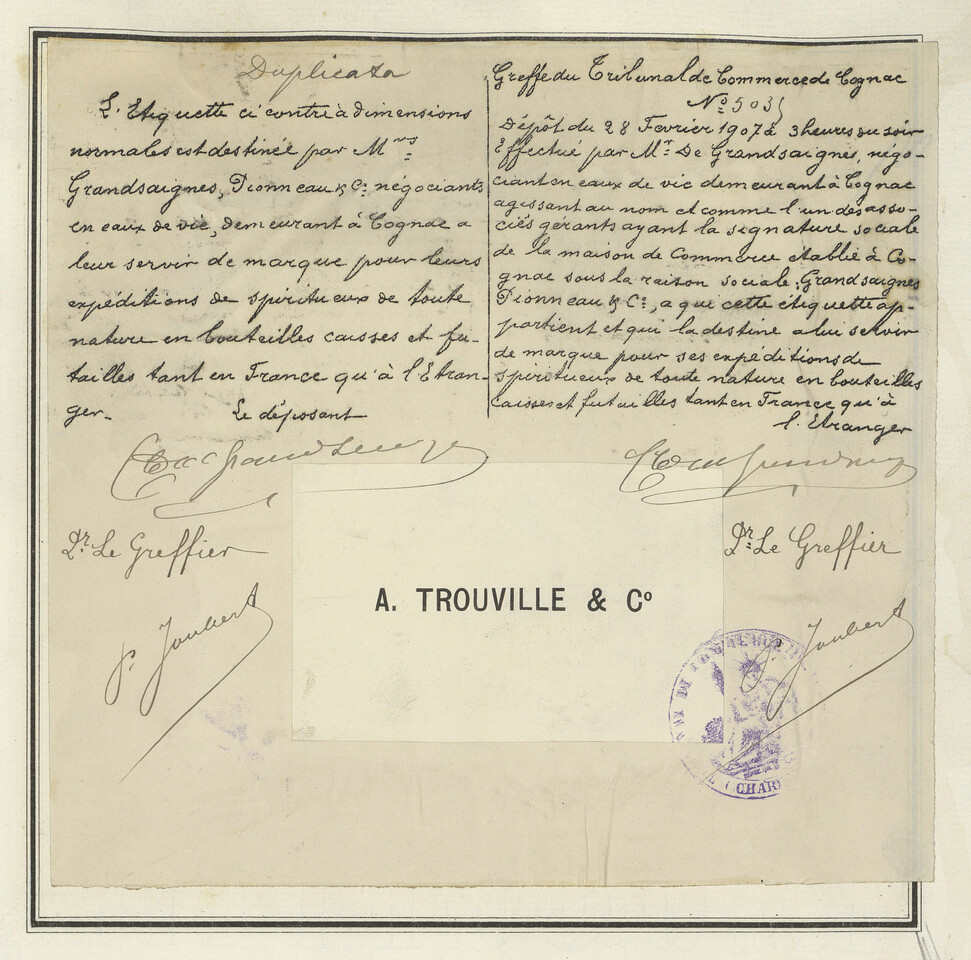 Duplicata
L'Etiquette ci contre à dimensions
normales est destinée par Mrs
Grandsaignes, Pionneau & Cie négociants
en eaux de vie, demeurant à Cognac a
leur servir de marque pour leurs
expéditions de spiritueux de toute
nature en bouteilles caisses et fu-
tailles tant en France qu'à l'Etran-
ger.
Le déposant
Pr Le Greffier
P. Joubert
Greffe du Tribunal de Commerce de Cognac
No 5035
Dépôt du 28 Fevrier 1907 à 3 heures du soir
Effectué par Mr De Grandsaignes, négo-
ciant en eaux de vie demeurant à Cognac
agissant au nom et comme l'un des asso-
ciés gérants ayant la signature sociale
de la maison de Commerce etablie à Co-
gnac sous la raison sociale, Grandsaignes
Pionneau & Cie, a qui cette étiquette ap-
partient et qui la destine a lui servir
de marque pour ses expéditions de
spiritueux de toute nature en bouteilles
caisses et futailles tant en France qu'à
l'Etranger
Pr Le Greffier
P. Joubert
A. TROUVILLE & Co